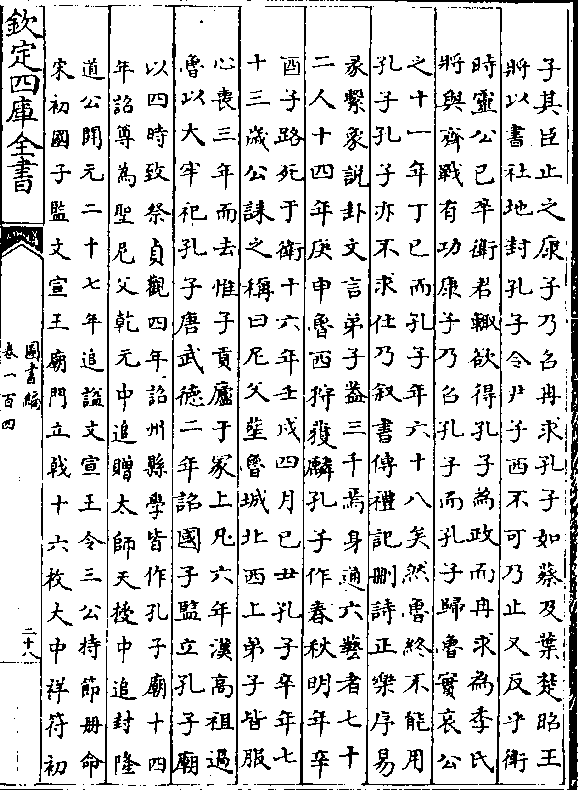 子其臣止之康子乃召冉求孔子如蔡及葉楚昭王
將以書社地封孔子令尹子西不可乃止又反乎衛
時靈公已卒衛君輒欲得孔子為政而冉求為季氏
將與齊戰有功康子乃召孔子而孔子歸魯實哀公
之十一年丁巳而孔子年六十八矣然魯終不能用
孔子孔子亦不求仕乃叙書傳禮記刪詩正樂序易
彖繫象說卦文言弟子益三千焉身通六藝者七十
二人十四年庚申魯西狩獲麟孔子作春秋明年辛
酉子路死于衛十六年壬戌四月已丑孔子卒年七
十三歲公誄之稱曰尼父塟魯城北西上弟子皆服
心喪三年而去惟子貢廬于冢上凡六年漢高祖過
魯以大牢祀孔子唐武德二年詔國子監立孔子廟
以四時致祭貞觀四年詔州縣學皆作孔子廟十四
年詔尊為聖尼父乾元中追贈太師天授中追封隆
道公開元二十七年追諡文宣王令三公持節冊命
宋初國子監文宣王廟門立戟十六枚大中祥符初
欽定四庫全書
圖書編
卷一百四
二十八